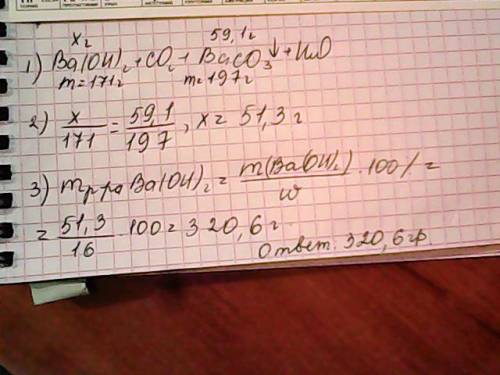 x г 59,1 г
1) Ba(OH)₂ + CO₂ + BaCO₃↓ + H₂O
m = 171 г m = 197 г
2) x/171 = 59,1/197, x = 51,3 г
3) m р-ра Ba(OH)₂ = m(Ba(OH)₂)/ω · 100% =
= 51,3/16 · 100 = 320,6 г
Ответ: 320,6 гр.